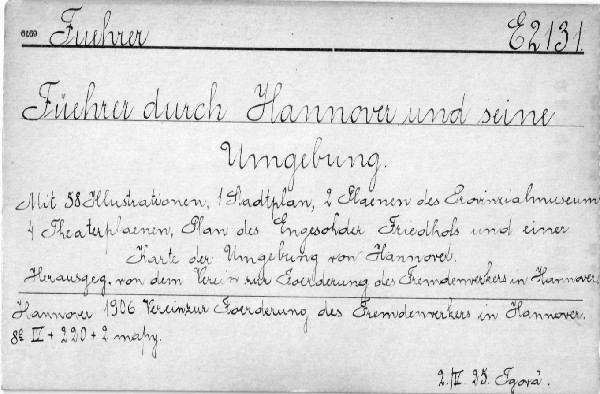 6079 Fuehrer E2131.
Füehrer durch Hannover und seine
Umgebung.
Mit 58 Illustrationen, 1 Stadtplan, 2 Plaenen des Provinzialmuseums
4 Theaterplaenen, Plan des Engesohder Friedhofs und einer
Karte der Umgebung von Hannover.
Herausgeg. von dem Verein zur Foerderung des Fremdenverkers in Hannover.
Hannover 1906 Verein zur Foerderung des Fremdenverkers in Hannover.
8° IV + 220 + 2 mapy.
2./II. 25.